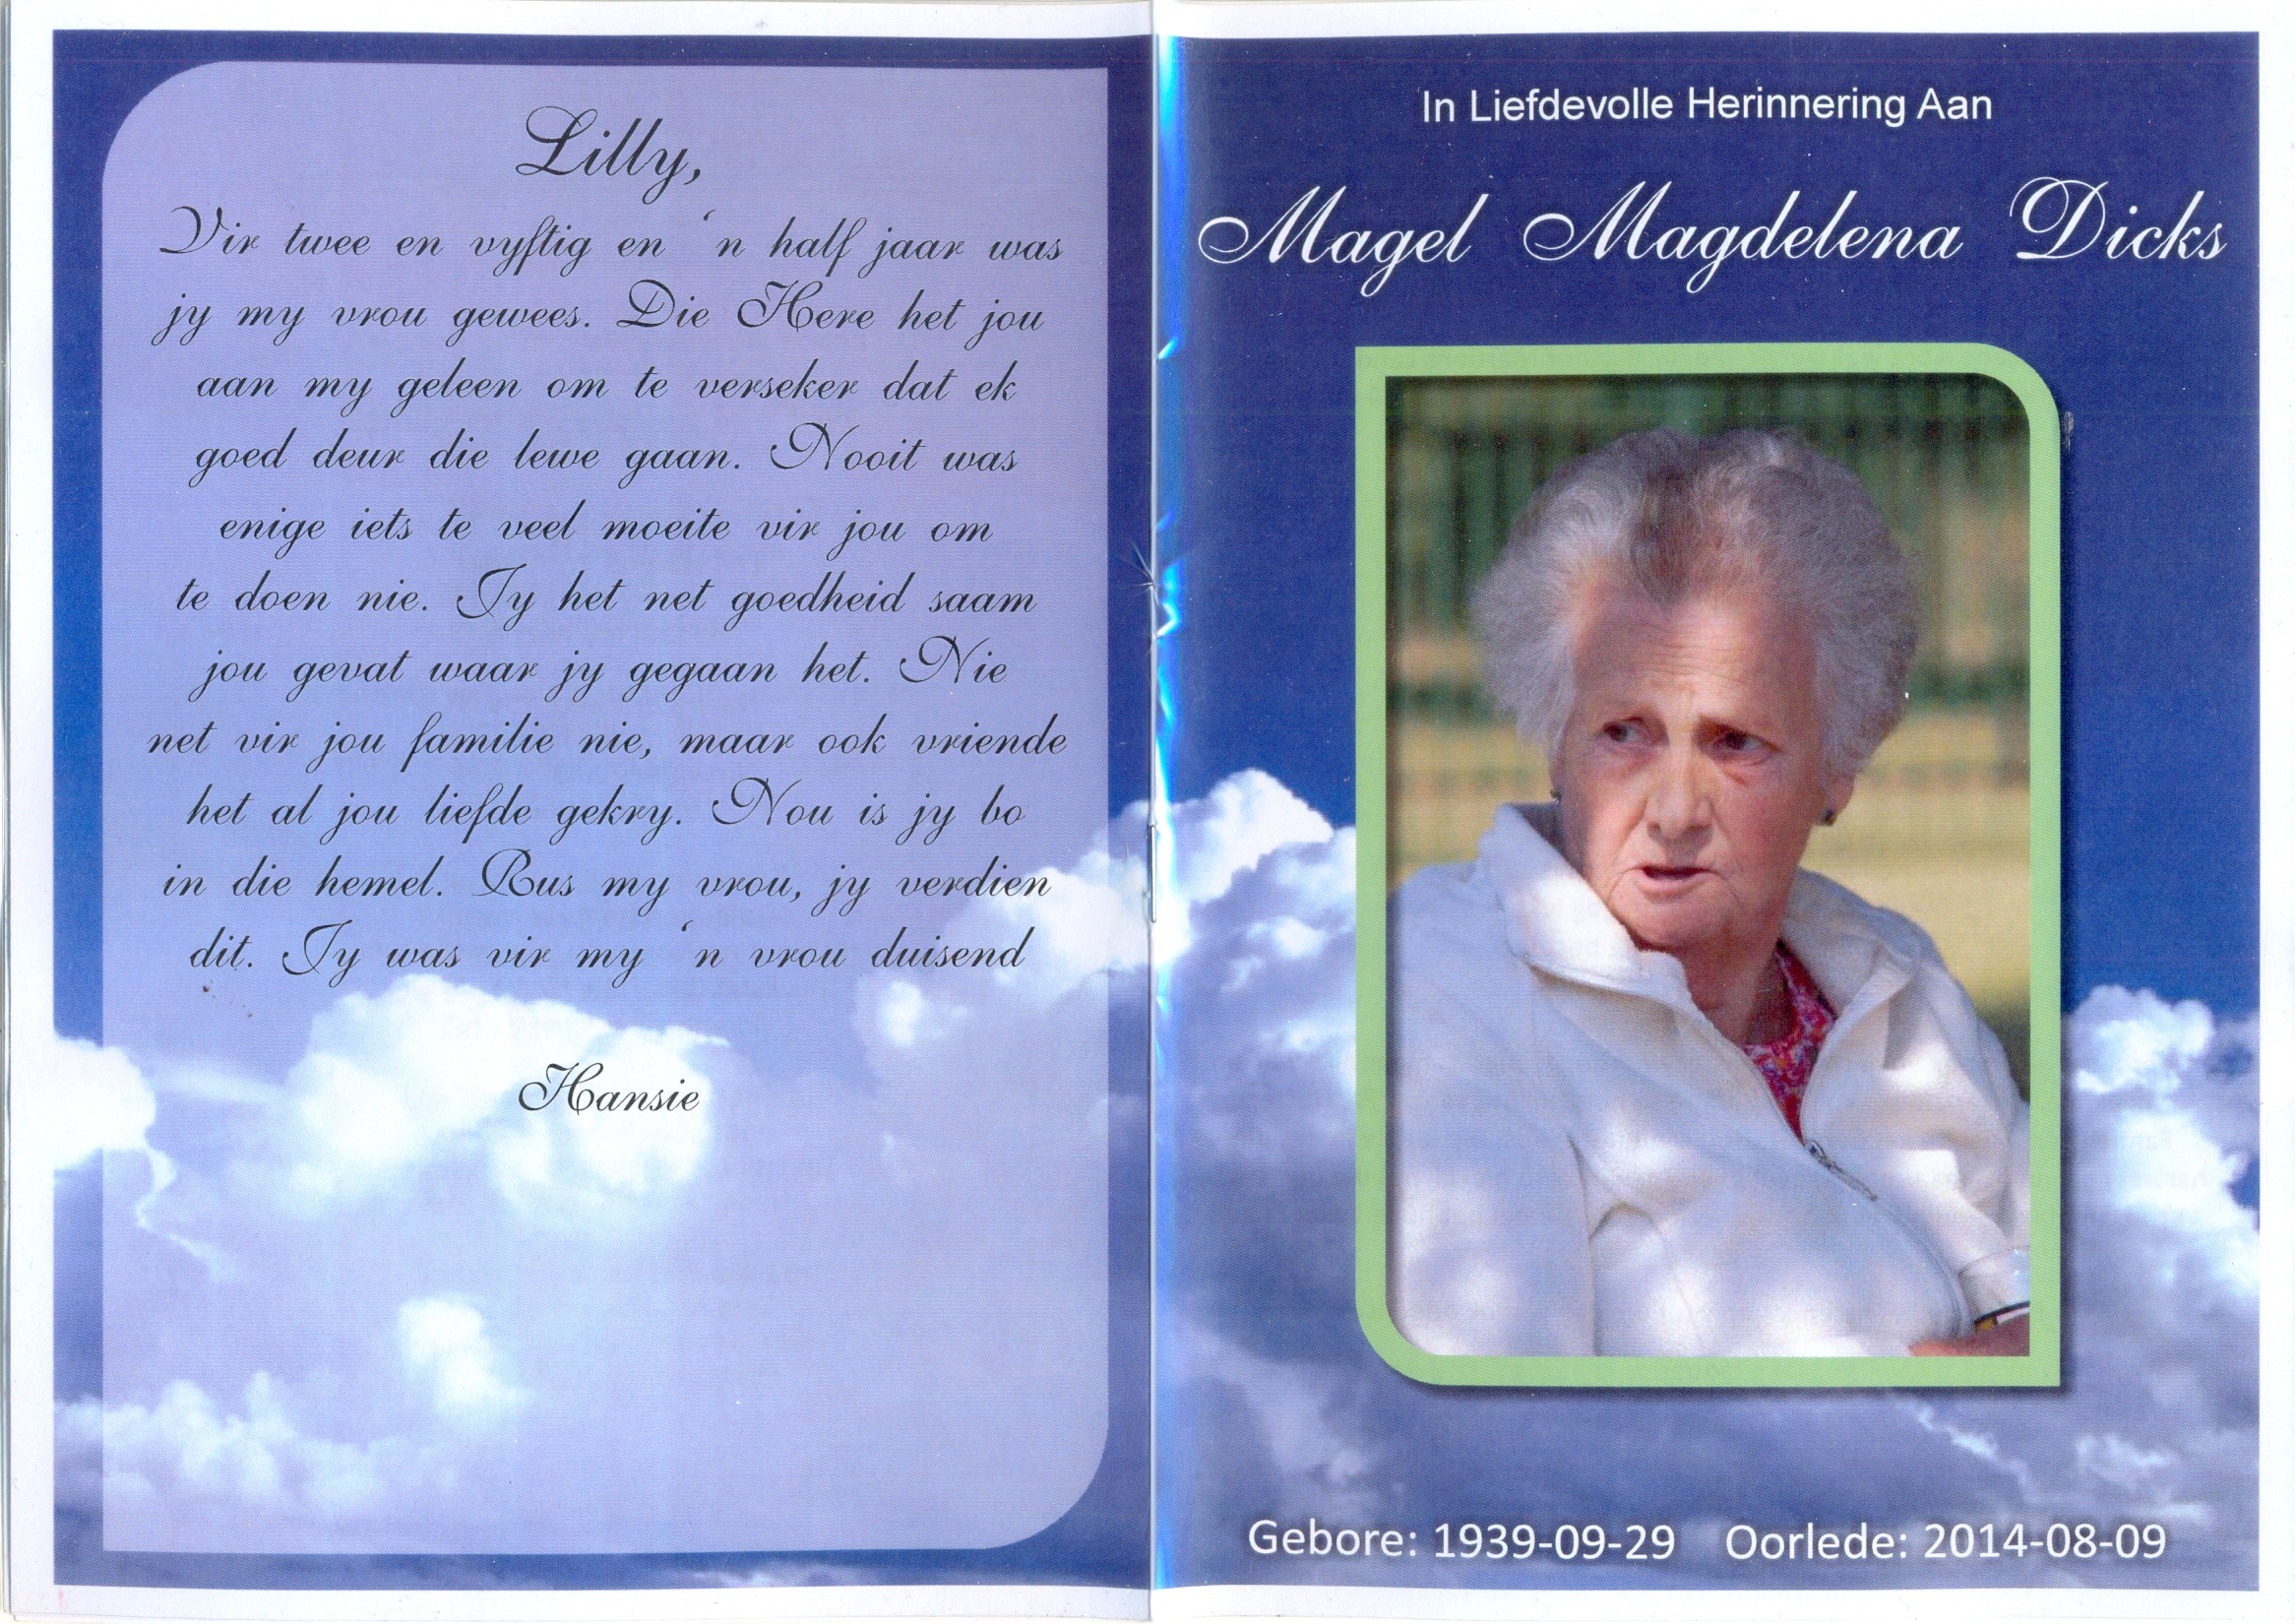 Lilly,
Vir twee en vyftig en ‘n half jaar was
jy my vrou gewees. Die Here het jou
aan my geleen om te verseker dat ek
goed deur die lewe gaan. Nooit was
enige iets te veel moeite vir jou om
te doen nie. Jy het net goedheid saam
jou gevat waar jy gegaan het. Nie
net vir jou familie nie, maar ook vriende
het al jou liefde gekry. Nou is jy bo
in die hemel. Rus my vrou, jy verdien
dit. Jy was vir my ‘n vrou duisend
Hansie
In Liefdevolle Herinnering Aan
Magel Magdelena Dicks
Gebore: 1939-09-29 Oorlede: 2014-08-09